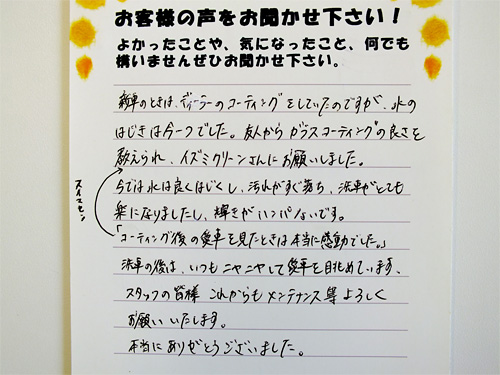 お客様の声をお聞かせ下さい！
よかったことや、気になったこと、何でも
構いませんぜひお聞かせ下さい。
新車のときは、ディーラーのコーティングをしていたのですが、水の
はじきは今一つでした。友人からガラスコーティングの良さを
教えられ、イズミクリーンさんにお願いしました。
今では水は良くはじくし、汚れがすぐ落ち、洗車がとても
楽になりましたし、輝きがハンパないです。
「コーティング後の愛車を見たときは本当に感動でした。」
洗車の後は、いつもニヤニヤして愛車を眺めています、
スタッフの皆様 これからもメンテナンス等よろしく
お願いいたします。
本当にありがとうございました。